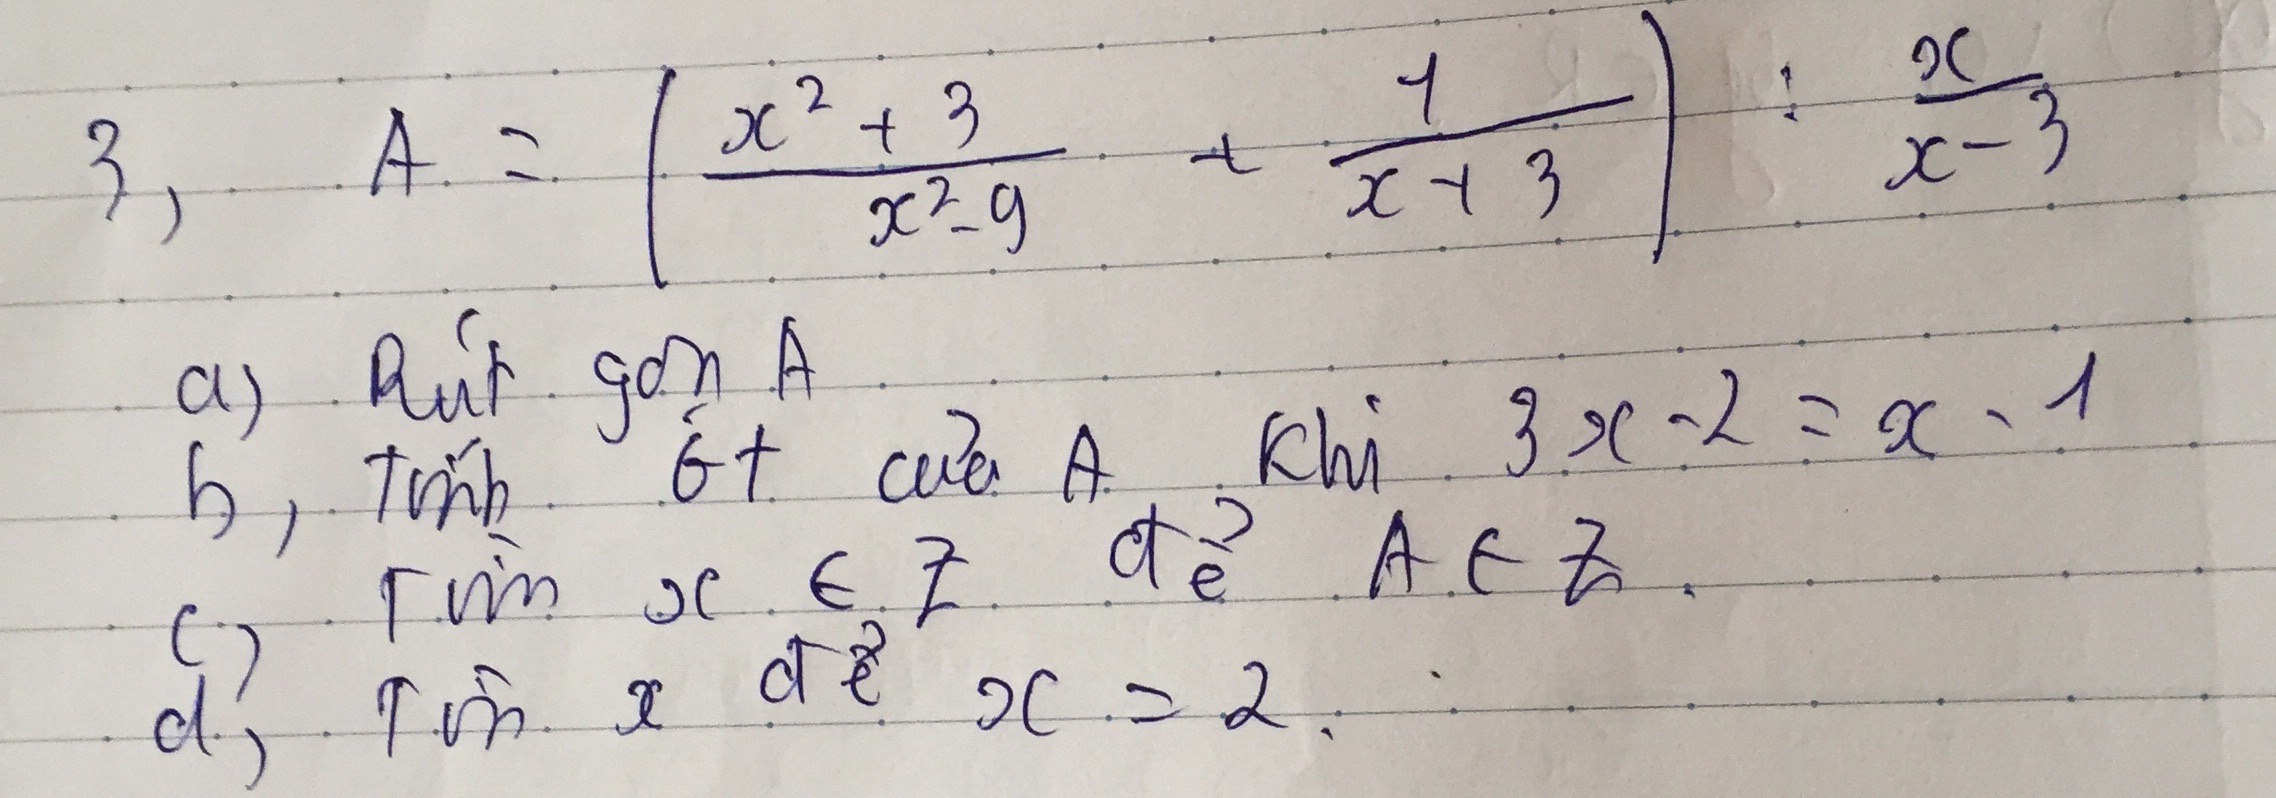 3, A = ( x² + 3 / x² - 9 + 1 / x + 3 ) : x / x - 3
a) Rút gọn A
b, Tính Gt của A Khi 3x - 2 = x - 1
c, Tìm x ∈ Z để A ∈ Z.
d, Tìm x để x = 2.